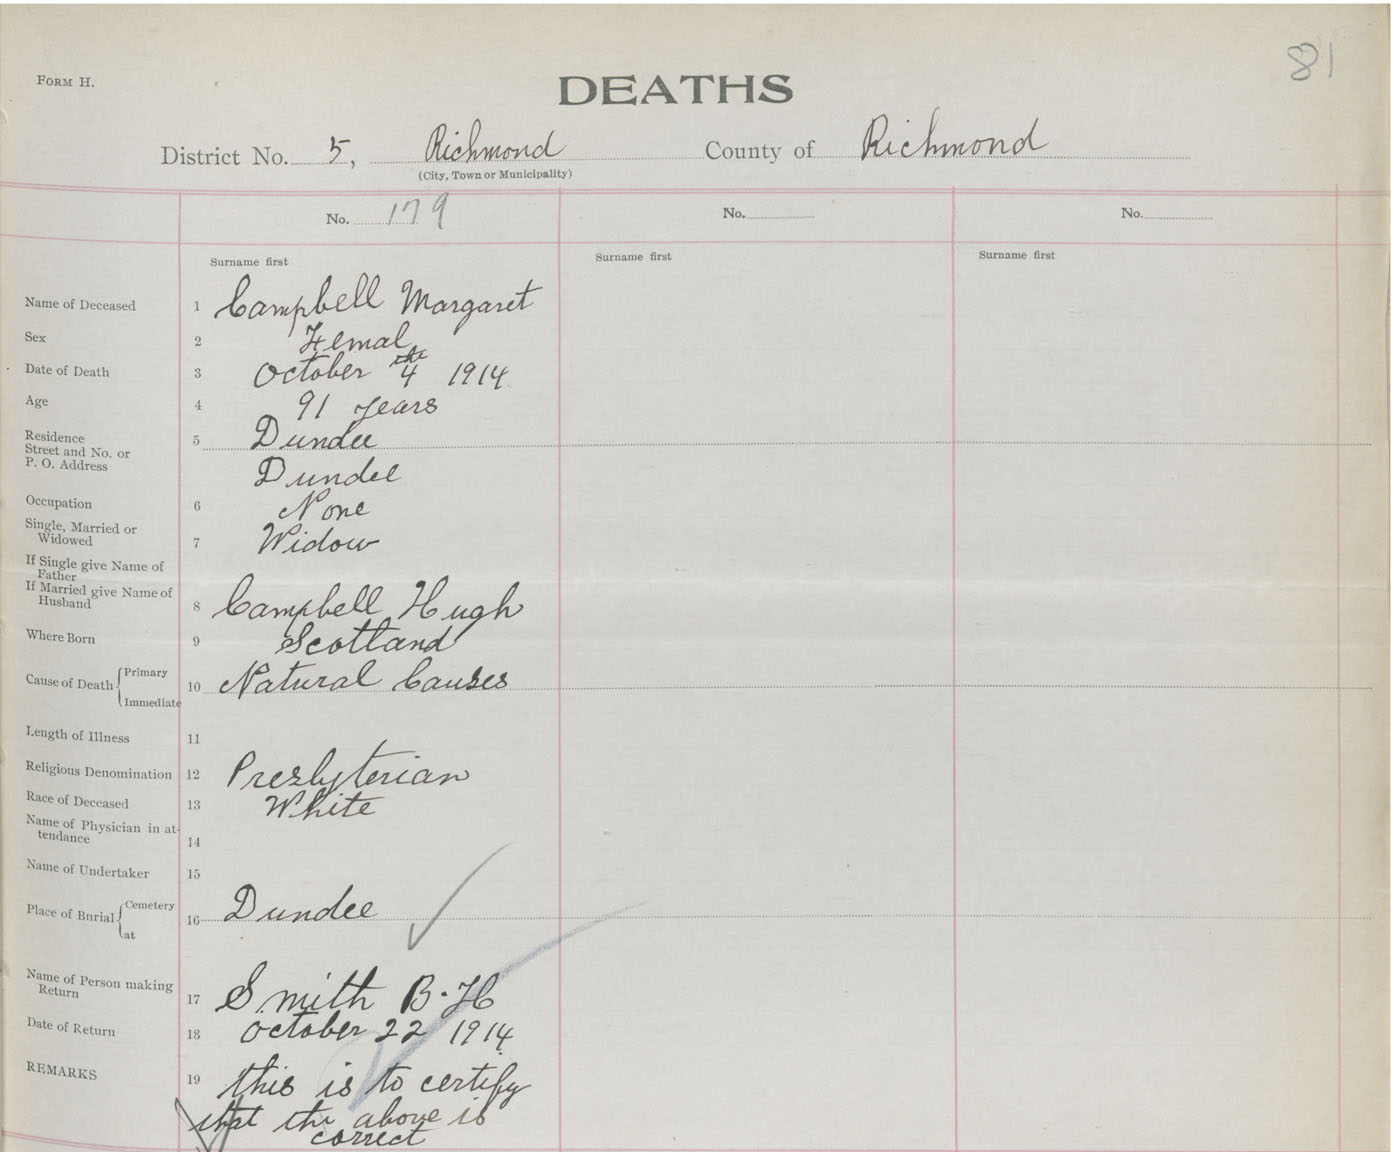 81
FORM H.
DEATHS
District No. 5, Richmond County of Richmond
(City, Town or Municipality)
No. 179 No. No.
Surname first Surname first Surname first
Name of Deceased 1 Campbell Margaret
Sex 2 Femal
Date of Death 3 October 4the 1914
Age 4 91 years
Residence 5 Dundee
Street and No. or
P. O. Address Dundee
Occupation 6 None
Single, Married or
Widowed 7 Widow
If Single give Name of
Father
If Married give Name of
Husband 8 Campbell Hugh
Where Born 9 Scotland
Cause of Death Primary 10 Natural Causes
Immediate
Length of Illness 11
Religious Denomination 12 Presbyterian
Race of Deceased 13 White
Name of Physician in at-
tendance 14
Name of Undertaker 15
Place of Burial Cemetery 16 Dundee
at
Name of Person making
Return 17 Smith B. H
Date of Return 18 October 22 1914
REMARKS 19 this is to certify
that the above is
correct